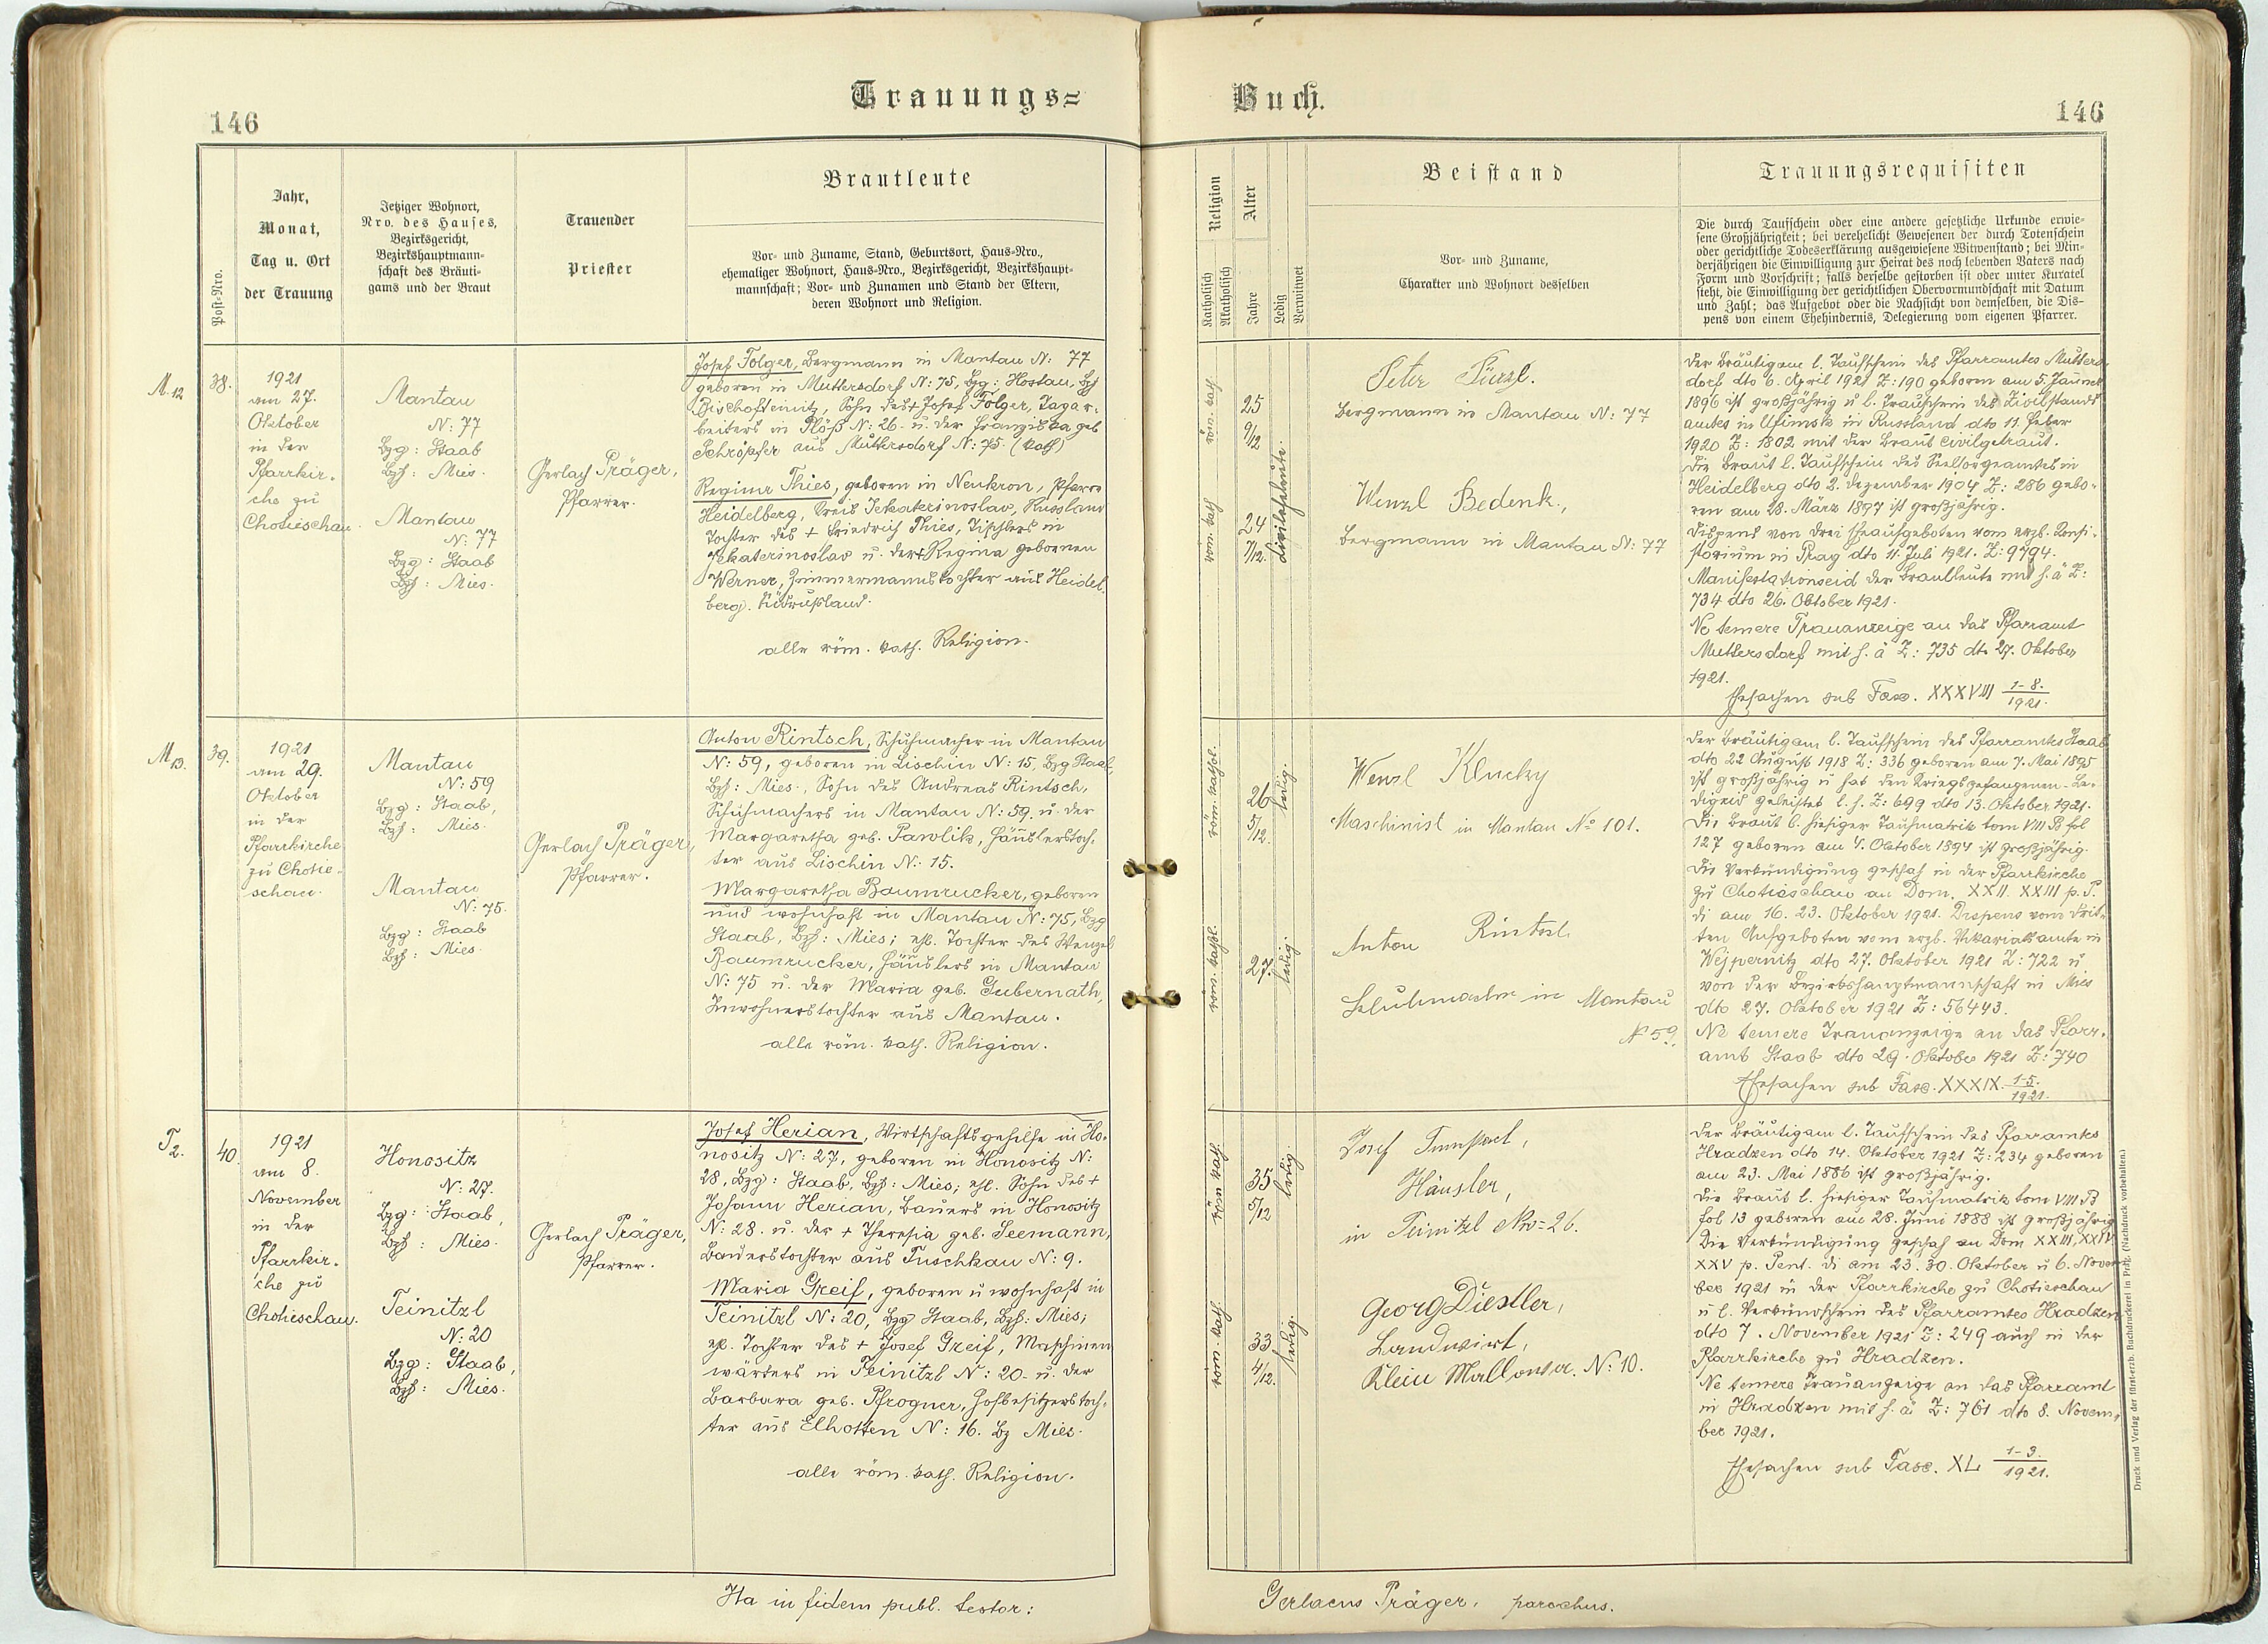 Trauungs=
Buch.
146
146
Post-Nro.
Jahr,
Monat,
Tag u. Ort
der Trauung
Jetziger Wohnort,
Nro. des Hauses,
Bezirksgericht,
Bezirkshauptmann-
schaft des Bräuti-
gams und der Braut
Trauender
Priester
Brautleute
Vor- und Zuname, Stand, Geburtsort, Haus-Nro.,
ehemaliger Wohnort, Haus-Nro., Bezirksgericht, Bezirkshaupt-
mannschaft; Vor- und Zunamen und Stand der Eltern,
deren Wohnort und Religion.
Religion
Katholisch
Akatholisch
Alter
Jahre
Ledig
Verwitwet
Beistand
Vor- und Zuname,
Charakter und Wohnort desselben
Trauungsrequisiten
Die durch Taufschein oder eine andere gesetzliche Urkunde erwie-
sene Großjährigkeit; bei verehelicht Gewesenen der durch Totenschein
oder gerichtliche Todeserklärung ausgewiesene Witwenstand; bei Min-
derjährigen die Einwilligung zur Heirat des noch lebenden Vaters nach
Form und Vorschrift; falls derselbe gestorben ist oder unter Kuratel
steht, die Einwilligung der gerichtlichen Obervormundschaft mit Datum
und Zahl; das Aufgebot oder die Nachsicht von demselben, die Dis-
pens von einem Ehehindernis, Delegierung vom eigenen Pfarrer.
M. 12
38.
1921
am 27.
Oktober
in der
Pfarrkir-
che zu
Chotieschau.
Mantau
N: 77
Bzg: Staab
Bzh: Mies.
Mantau
N: 77
Bzg: Staab
Bzh: Mies.
Gerlach Präger,
Pfarrer.
Josef Folger, Bergmann in Mantau N: 77
geboren in Muttersdorf N: 75, Bzg: Hostau, Bzh
Bischofteinitz, Sohn des + Josef Folger, Tagar-
beiters in Plöß N: 26. u. der Franziska geb
Schröpfer aus Muttersdorf N: 75. (kath)
Regina Thies, geboren in Neukron, Pfarre
Heidelberg, Kreis Jekaterinoslav, Russland
Tochter des + Friedrich Thies, Tischlers in
Jekaterinoslav u. der + Regina gebornen
Werner, Zimmermannstochter aus Heidel
berg. Südrußland.
alle röm. kath. Religion.
röm. kath.
25
9/12
röm. kath
24
7/12.
Civilehe
Peter
Bergmann in Mantau N: 77
Wenzl Bedenk.,
Bergmann in Mantau N: 77
Der Bräutigam l. Taufschein des Pfarramtes Mutters
dorf dto 6. April 1921 Z: 190 geboren am 5. Jänner
1896 ist großjährig u l. Trauschein des Zivilstands
amtes in Ufimsk in Russland dto 11. Feber
1920 Z: 1802 mit der Braut civilgetraut.
Die Braut l. Taufschein des Seelsorgeamtes in
Heidelberg dto 2. Dezember 1904 Z: 286 gebo-
ren am 28. März 1897 ist großjährig.
Dispens von drei Eheaufgeboten vom erzb. Consi-
storium in Prag dto 11. Juli 1921. Z: 9794.
Manifestationseid der Brautleute mit h. ä Z:
734 dto 26. Oktober 1921.
Ne temere Trauanzeige an das Pfarramt
Muttersdorf mit h. ä Z: 735 dto 27. Oktober
1921.
Ehesachen sub Fasc. XXXVIII 1-8./1921.
M 13.
39.
1921
am 29.
Oktober
in der
Pfarrkirche
zu Chotie-
schau.
Mantau
N: 59
Bzg: Staab,
Bzh: Mies.
Mantau
N: 75.
Bzg: Staab
Bzh: Mies.
Gerlach Präger,
Pfarrer.
Anton Rintsch, Schuhmacher in Mantau
N: 59, geboren in Lischin N: 15, Bzg Staab,
Bzh: Mies., Sohn des Andreas Rintsch,
Schuhmachers in Mantau N: 59. u. der
Margaretha geb. Pawlik, Häuslerstoch-
ter aus Lischin N: 15.
Margaretha Baumrucker, geboren
und wohnhaft in Mantau N: 75, Bzg
Staab, Bzh: Mies; ehl. Tochter des Wenzel
Baumrucker, Häuslers in Mantau
N: 75 u. der Maria geb. Gubernath,
Inwohnerstochter aus Mantau.
alle röm. kath. Religion.
röm. kathol.
26
5/12.
ledig.
röm. kathl.
27.
ledig.
Wenzl Kluchy
Maschinist in Mantau No 101.
Anton Rintsch
Schuhmacher in Mantau
N 59.
Der Bräutigam l. Taufschein des Pfarramtes Staab
dto 22 August 1918 Z: 336 geboren am 7. Mai 1895
ist großjährig u hat den Kriegsgefangenen-Le-
digeid geleistet l. h. Z: 699 dto 13. Oktober 1921.
Die Braut l. hiesiger Taufmatrik tom VIII B fol
127 geboren am 4. Oktober 1894 ist großjährig.
Die Verkündigung geschah in der Pfarrkirche
zu Chotieschau an Dom. XXII. XXIII p. P.
di am 16. 23. Oktober 1921. Dispens vom drit-
ten Aufgeboten vom erzb. Vikariatsamte in
Wejpernitz dto 27. Oktober 1921 Z: 722 u
von der Bezirkshauptmannschaft in Mies
dto 27. Oktober 1921 Z: 56443.
Ne temere Trauanzeige an das Pfarr-
amt Staab dto 29. Oktober 1921 Z: 740
Ehesachen sub Fasc. XXXIX. 1-5./1921.
T 2.
40.
1921
am 8.
November
in der
Pfarrkir-
che zu
Chotieschau.
Honositz
N: 27.
Bzg: Staab,
Bzh: Mies.
Teinitzl
N: 20
Bzg: Staab,
Bzh: Mies.
Gerlach Präger,
Pfarrer.
Josef Herian, Wirtschaftsgehilfe in Ho-
nositz N: 27, geboren in Honositz N:
28, Bzg: Staab, Bzh: Mies; ehl. Sohn des +
Johann Herian, Bauers in Honositz
N: 28. u. der + Theresia geb. Seemann,
Bauerstochter aus Tuschkau N: 9.
Maria Greif, geboren u wohnhaft in
Teinitzl N: 20, Bzg Staab, Bzh: Mies;
ehl. Tochter des + Josef Greif, Maschinen
wärters in Teinitzl N: 20. u. der
Barbara geb. Pfrogner, Hofbesitzerstoch-
ter aus Elhotten N: 16. Bz Mies.
alle röm. kath. Religion.
röm kath.
35
5/12
ledig.
röm. kath.
33
4/12.
ledig.
Josef
Häusler,
in Teinitzl Nro=26.
Georg Diestler,
Landwirt,
Klein N: 10.
Der Bräutigam l. Taufschein des Pfarramtes
Hradzen dto 14. Oktober 1921 Z: 234 geboren
am 23. Mai 1886 ist großjährig.
Die Braut l. hiesiger Taufmatrik tom VIII B
fol 13 geboren am 28. Juni 1888 ist großjährig
Die Verkündigung geschah an Dom XXIII, XXIV
XXV p. Pent. di am 23. 30. Oktober u 6. Novem
ber 1921 in der Pfarrkirche zu Chotieschau
u l. Verkündschein des Pfarramtes Hradzen
dto 7. November 1921 Z: 249 auch in der
Pfarrkirche zu Hradzen.
Ne temere Trauanzeige an das Pfarramt
in Hradzen mit h. ä Z: 761 dto 8. Novem-
ber 1921.
Ehesachen sub Fasc. XL 1-3./1921.
Druck und Verlag der fürsterzb. Buchdruckerei in Prag. (Nachdruck vorbehalten.)
Ita in fidem publ. testor:
Gerlacus Präger, parochus.